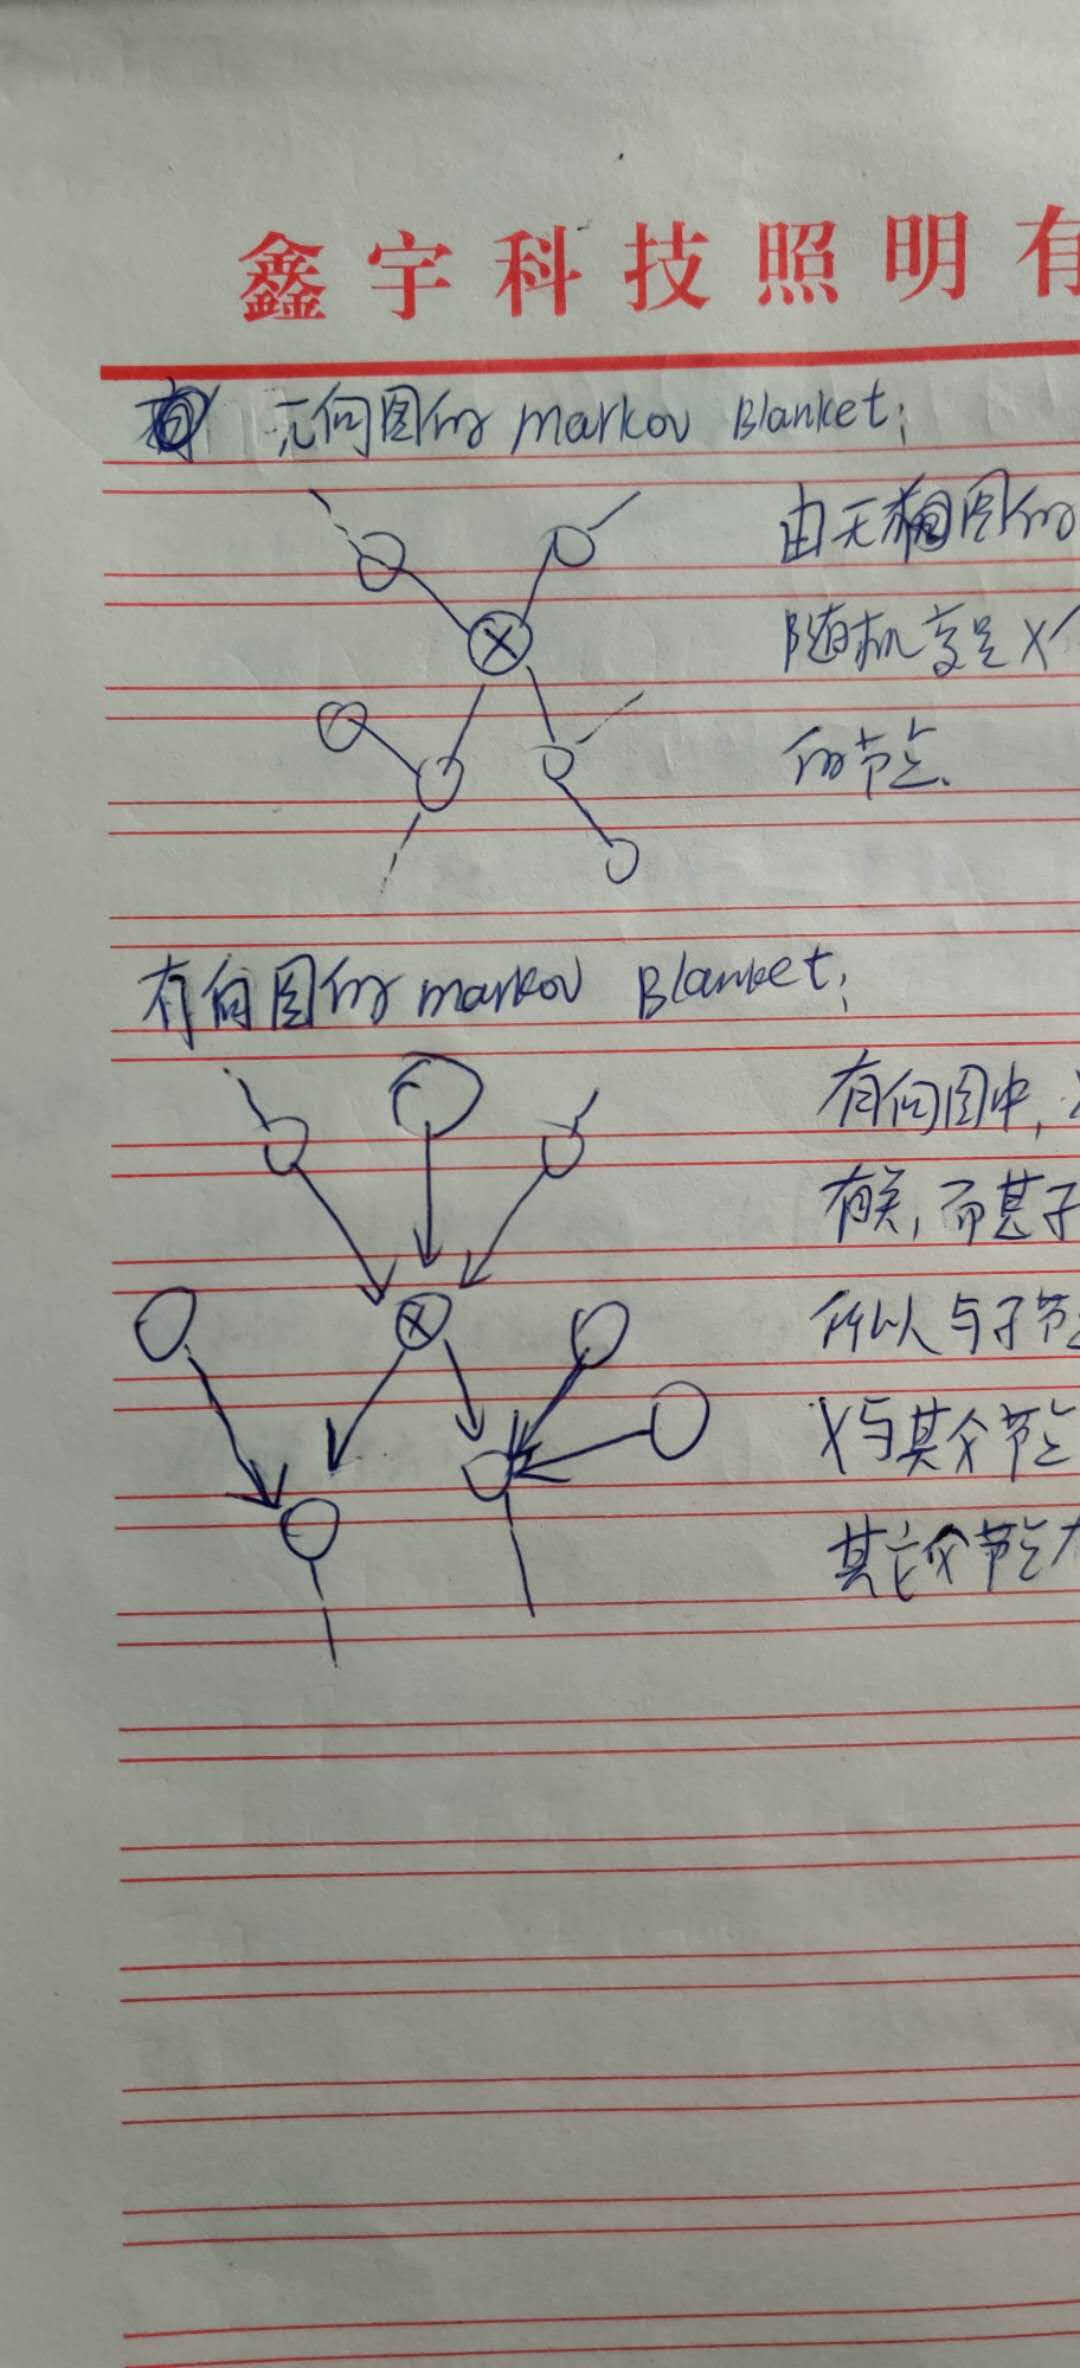 鑫宇科技照明有
无向图的 Markov Blanket:
由无向图的
随机变量X
的节点.
有向图的 markov Blanket:
有向图中,
有关, 而其子
所以与子节点
X与其父节点
其它父节点
X
X